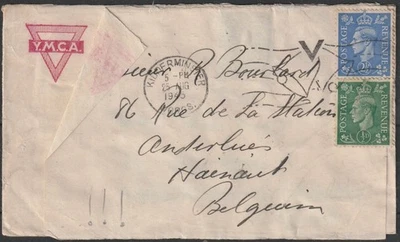 Y.M.C.A.
KIDDERMINSTER
5 - PM
25 AUG
1945
WORCS.
V
POSTAGE REVENUE
2½D
POSTAGE REVENUE
½D
Monsieur R Boustard
86 Rue de la Station
Anderlues
Hainaut
Belgium